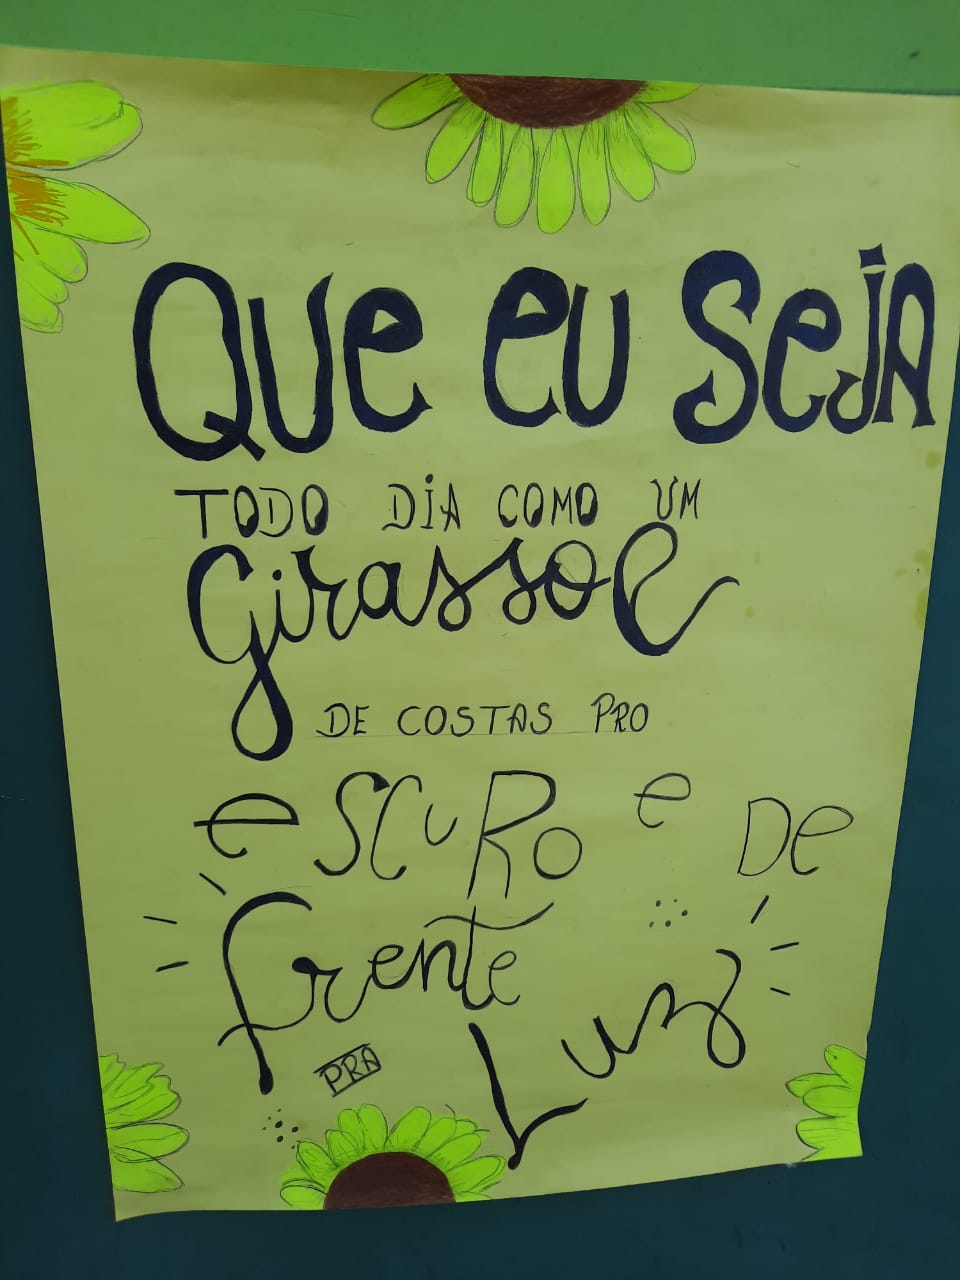 Que eu seja
TODO DIA COMO UM
Girassol
DE COSTAS PRO
escuro e De
frente
PRA Luz